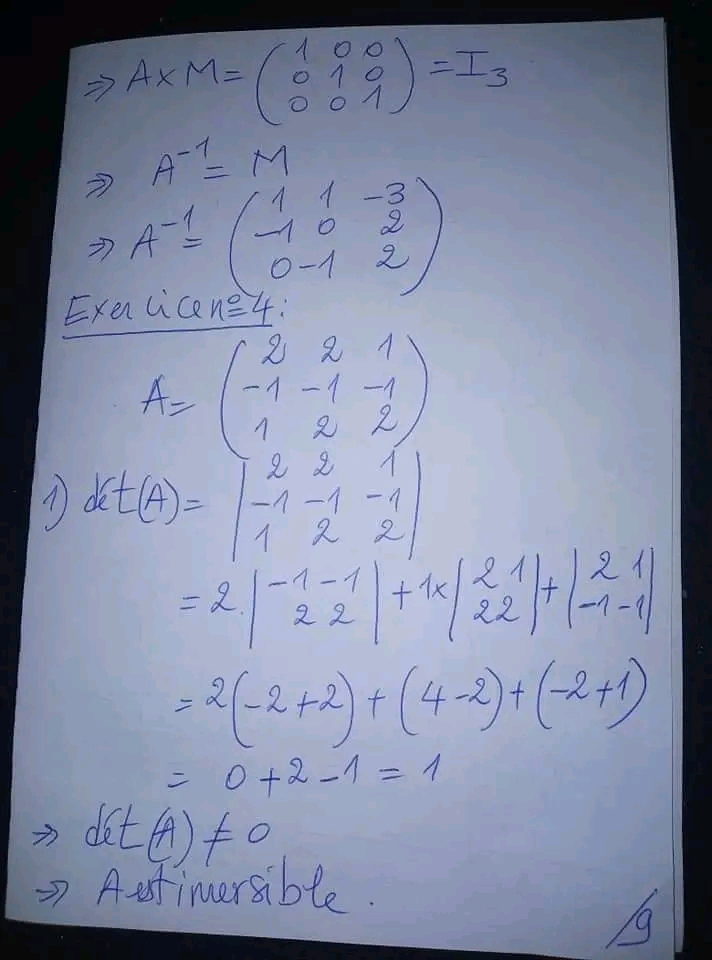 ⇒ A×M = ( 1 0 0
0 1 0
0 0 1 ) = I₃
⇒ A⁻¹ = M
⇒ A⁻¹ = ( 1 1 -3
-1 0 2
0 -1 2 )
Exercice n°4:
A = ( 2 2 1
-1 -1 -1
1 2 2 )
1) dét(A) = | 2 2 1
-1 -1 -1
1 2 2 |
= 2. | -1 -1
2 2 | + 1× | 2 1
2 2 | + | 2 1
-1 -1 |
= 2(-2+2) + (4-2) + (-2+1)
= 0+2-1 = 1
⇒ dét(A) ≠ 0
⇒ A est inversible.
/9